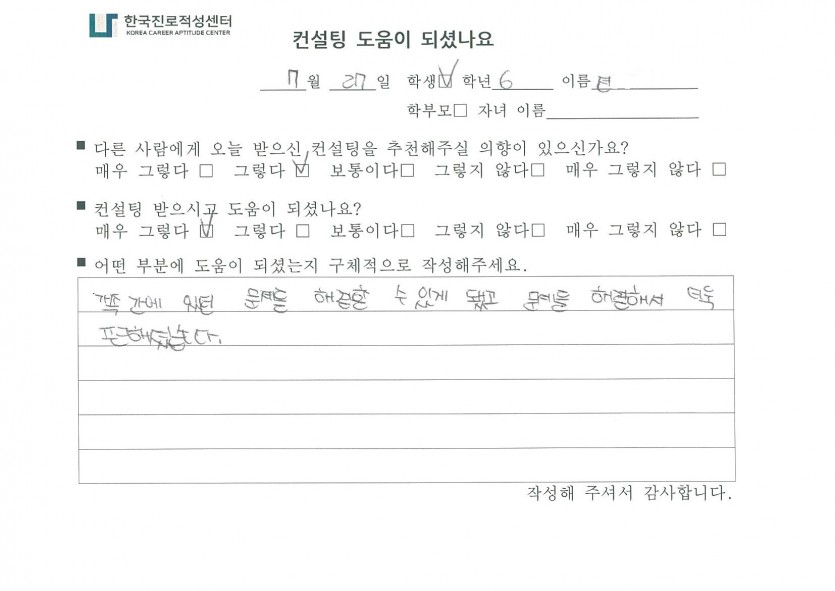 한국진로적성센터
KOREA CAREER APTITUDE CENTER
컨설팅 도움이 되셨나요
7월 27일 학생☑ 학년 6 이름
학부모□ 자녀 이름
■ 다른 사람에게 오늘 받으신 컨설팅을 추천해주실 의향이 있으신가요?
매우 그렇다 □ 그렇다 ☑ 보통이다□ 그렇지 않다□ 매우 그렇지 않다 □
■ 컨설팅 받으시고 도움이 되셨나요?
매우 그렇다 ☑ 그렇다 □ 보통이다□ 그렇지 않다□ 매우 그렇지 않다 □
■ 어떤 부분에 도움이 되셨는지 구체적으로 작성해주세요.
가족 간에 있던 문제를 해결할 수 있게 됐고 문제를 해결해서 더욱
포근해졌습니다.
작성해 주셔서 감사합니다.